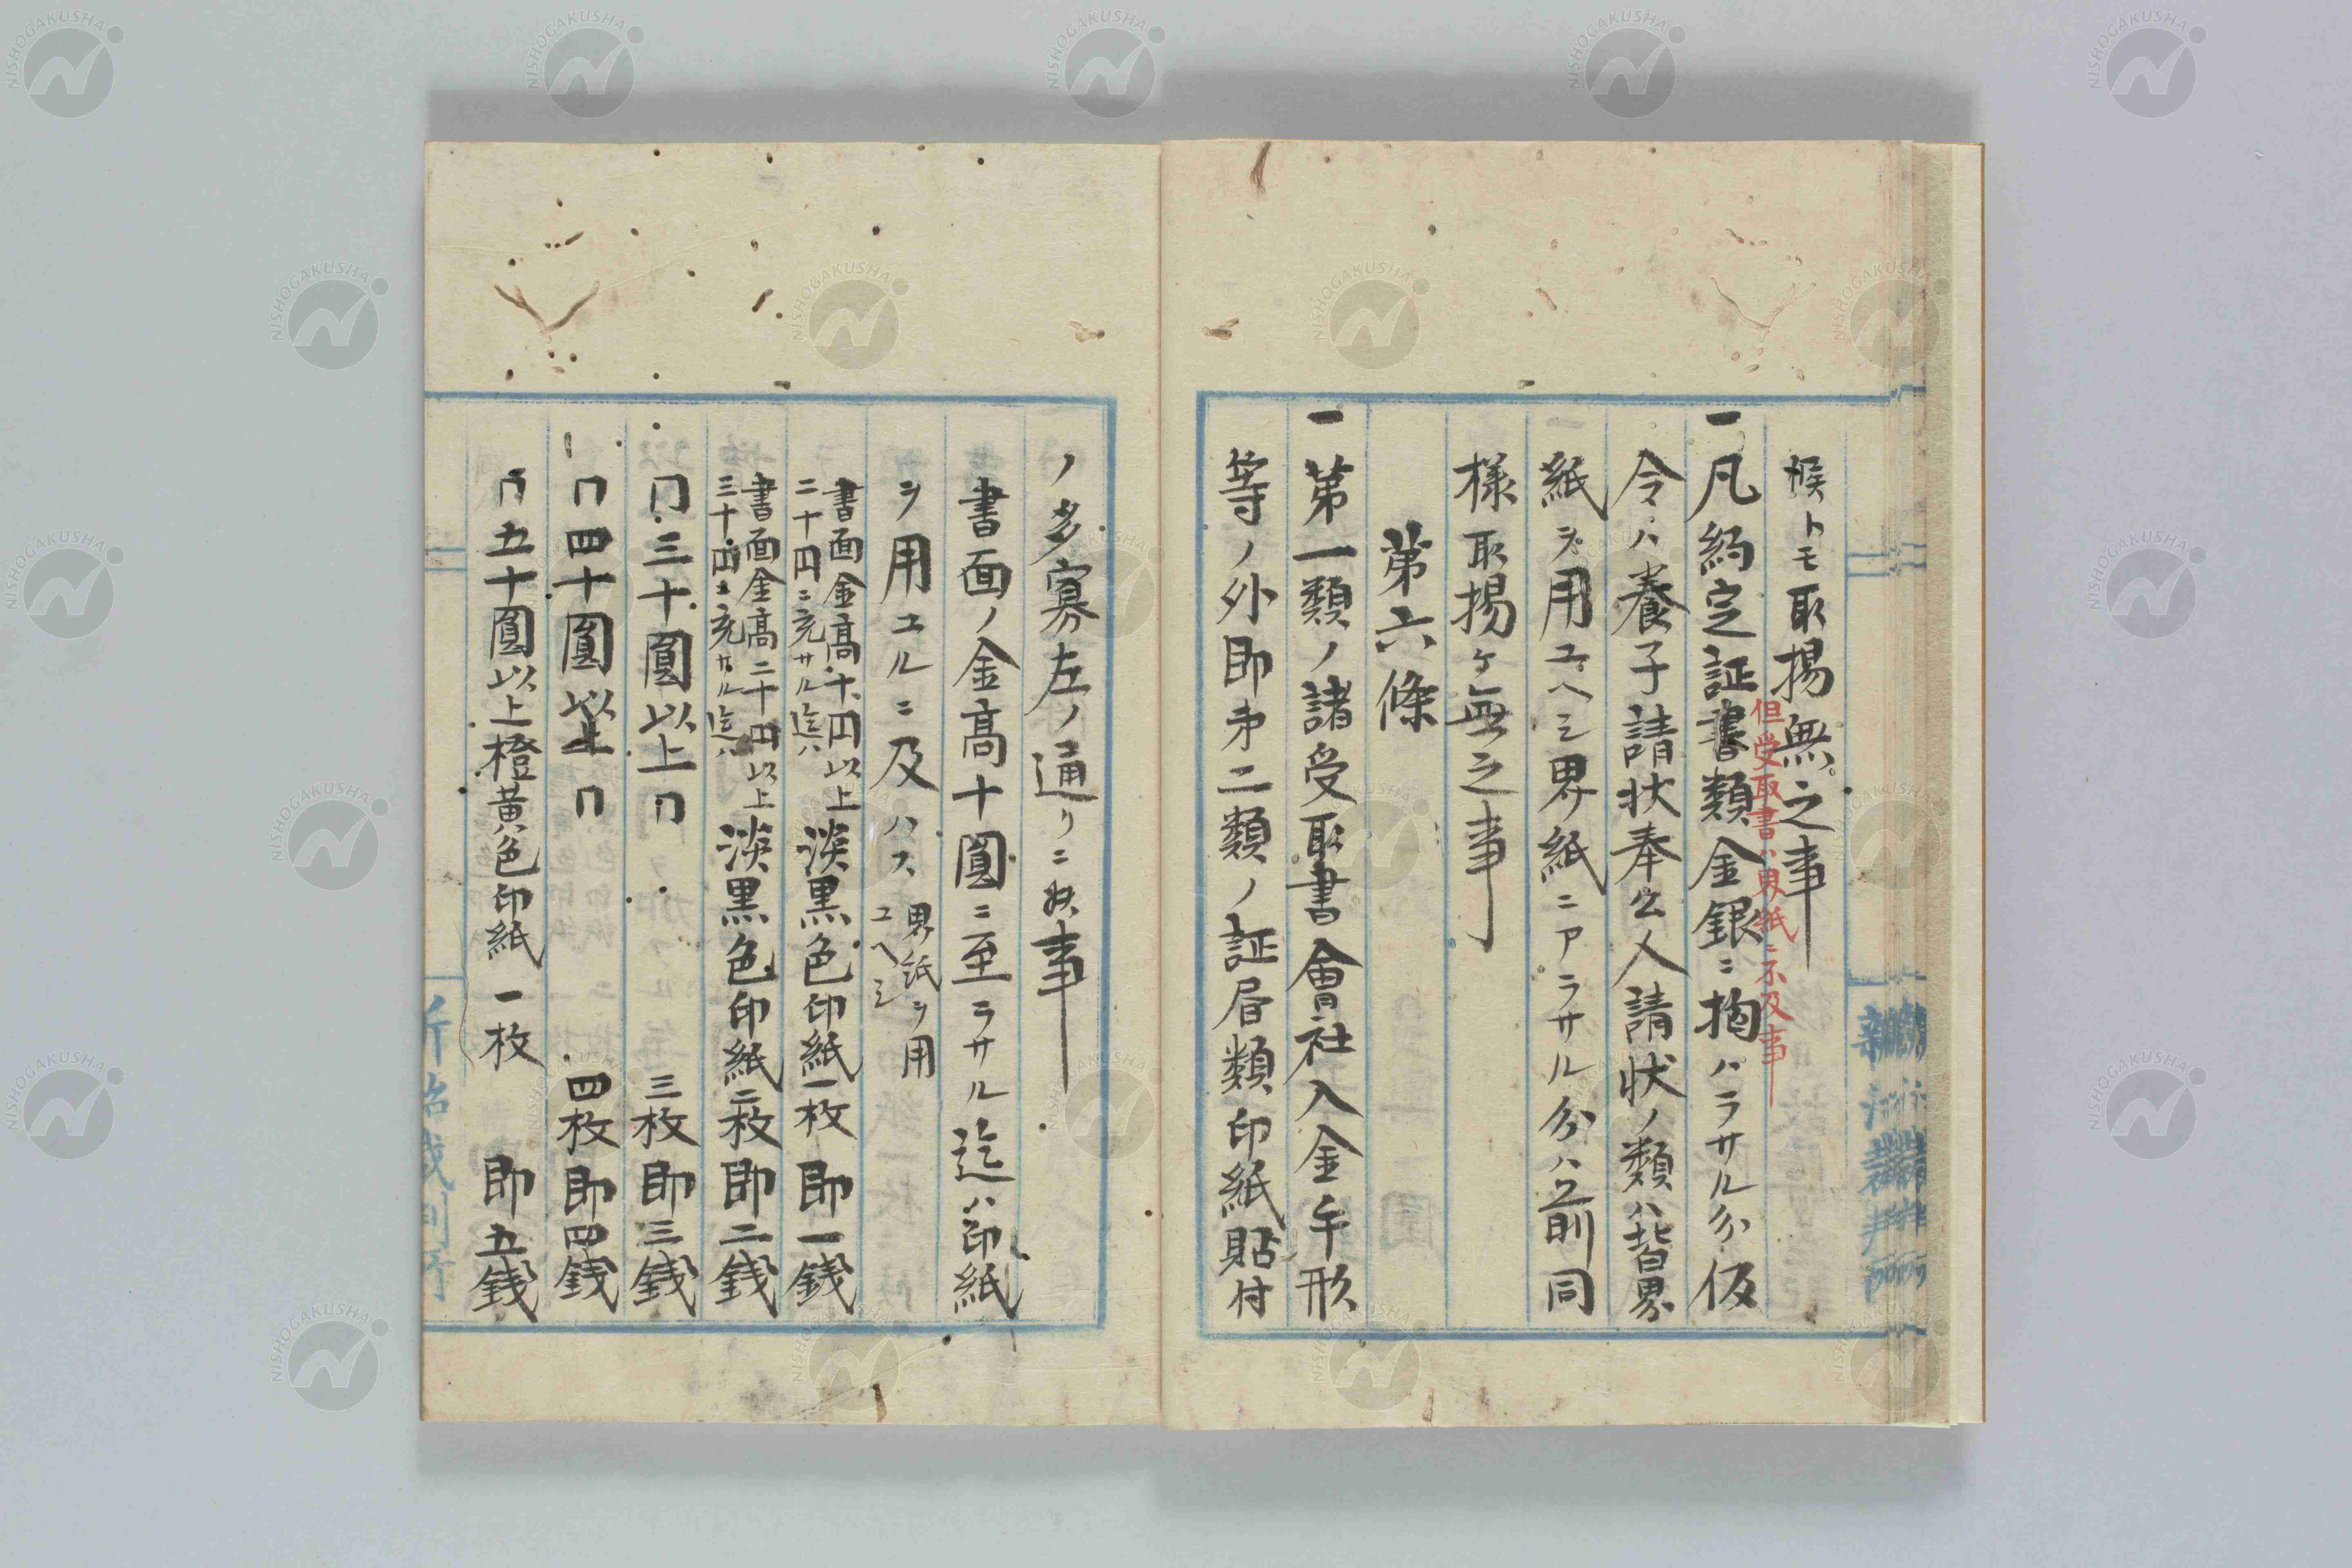 候トモ取揚無之事
但受取書ハ界紙ニ不及事
一凡約定証書類金銀ニ拘ハラサル分仮
令ハ養子請状奉公人請状ノ類ハ皆界
紙ヲ用ユヘシ界紙ニアラサル分ハ前同
様取揚ケ無之事
第六條
一第一類ノ諸受取書會社入金手形
等ノ外即第二類ノ証書類印紙貼付
ノ多寡左ノ通リニ候事
書面ノ金高十圓ニ至ラサル迄ハ印紙
ヲ用ユルニ及ハス 界紙ヲ用
ユヘシ
書面金高十円以上
二十円ニ充サル迄ハ 淡黒色印紙一枚 即一銭
書面金高二十円以上
三十円ニ充サル迄ハ 淡黒色印紙二枚 即二銭
〃三十圓以上〃 三枚 即三銭
〃四十圓以上〃 四枚 即四銭
〃五十圓以上橙黄色印紙 一枚 即五銭
NISHOGAKUSHA